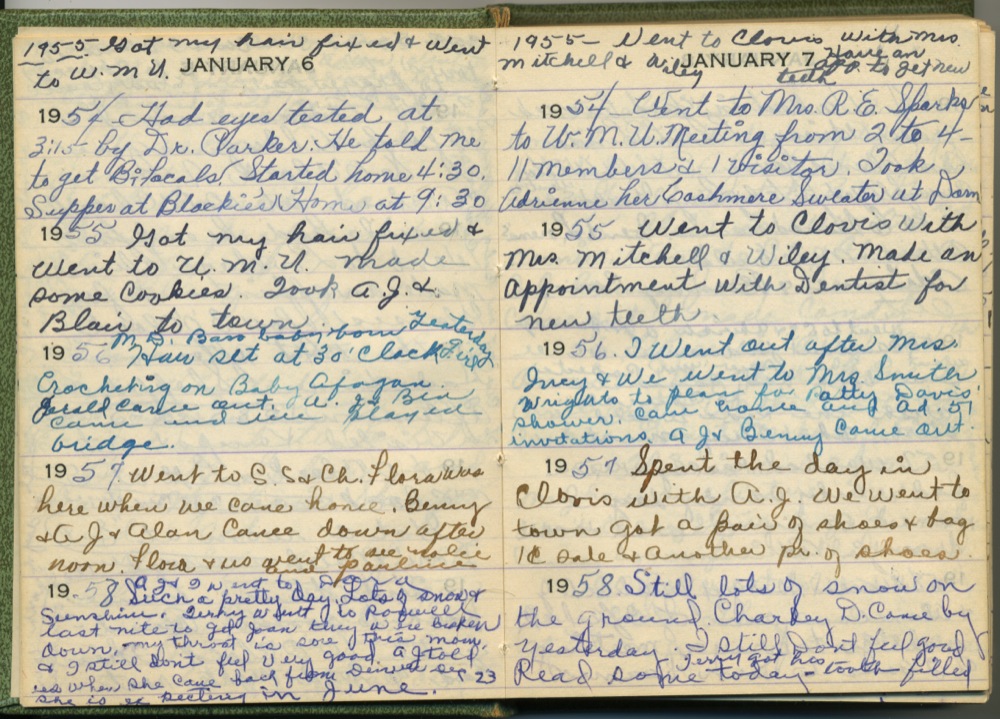 1955 Got my hair fixed & went
to W.M.U.
JANUARY 6
1954 Had eyes tested at
3:15 by Dr. Parker. He told me
to get Bifocals. Started home 4:30.
Supper at Blackies. Home at 9:30
1955 Got my hair fixed &
went to W.M.U. made
some cookies. Took A.J. &
Blair to town
M.D. Bass baby born yesterday
1956 Hair set at 3 o'clock
Crocheting on Baby Afagan.
Jerald came out. A.J. & Ben
came and we played
bridge.
1957. Went to S.S. & Ch. Flora was
here when we came home. Benny
& A.J. & Alan came down after
noon. Flora & us went to see
and Pauline
A.J. & I went to
1958 Such a pretty day Lots of snow &
Sunshine. Terry went to Roswell
last nite to get Joan they were broken
down. my throat is sore this morn.
& I still dont feel very good. A.J. told
us when she came back from Denver Dec 23
she is expecting in June.
1955 – Went to Clovis with Mrs.
Mitchell & Wiley
JANUARY 7
Have an
app. to get new
teeth
1954 – Went to Mrs. R.E. Sparks
to W.M.U. Meeting from 2 to 4 –
11 members & 1 visitor. Took
Adrienne her Cashmere Sweater at Dorm
1955 Went to Clovis with
Mrs. Mitchell & Wiley. Made an
appointment with Dentist for
new teeth.
1956. I went out after Mrs.
Ivey & we went to Mrs Smith
Wrights to plan for Patty Davis
shower. Came home and ad. 51
invitations. A J & Benny came out.
1957 Spent the day in
Clovis with A.J. We went to
town got a pair of shoes & bag
1¢ sale & another pr. of shoes.
1958. Still lots of snow on
the ground. Charley D. came by
yesterday. I still dont feel good
Terry got his
Read some today – tooth filled